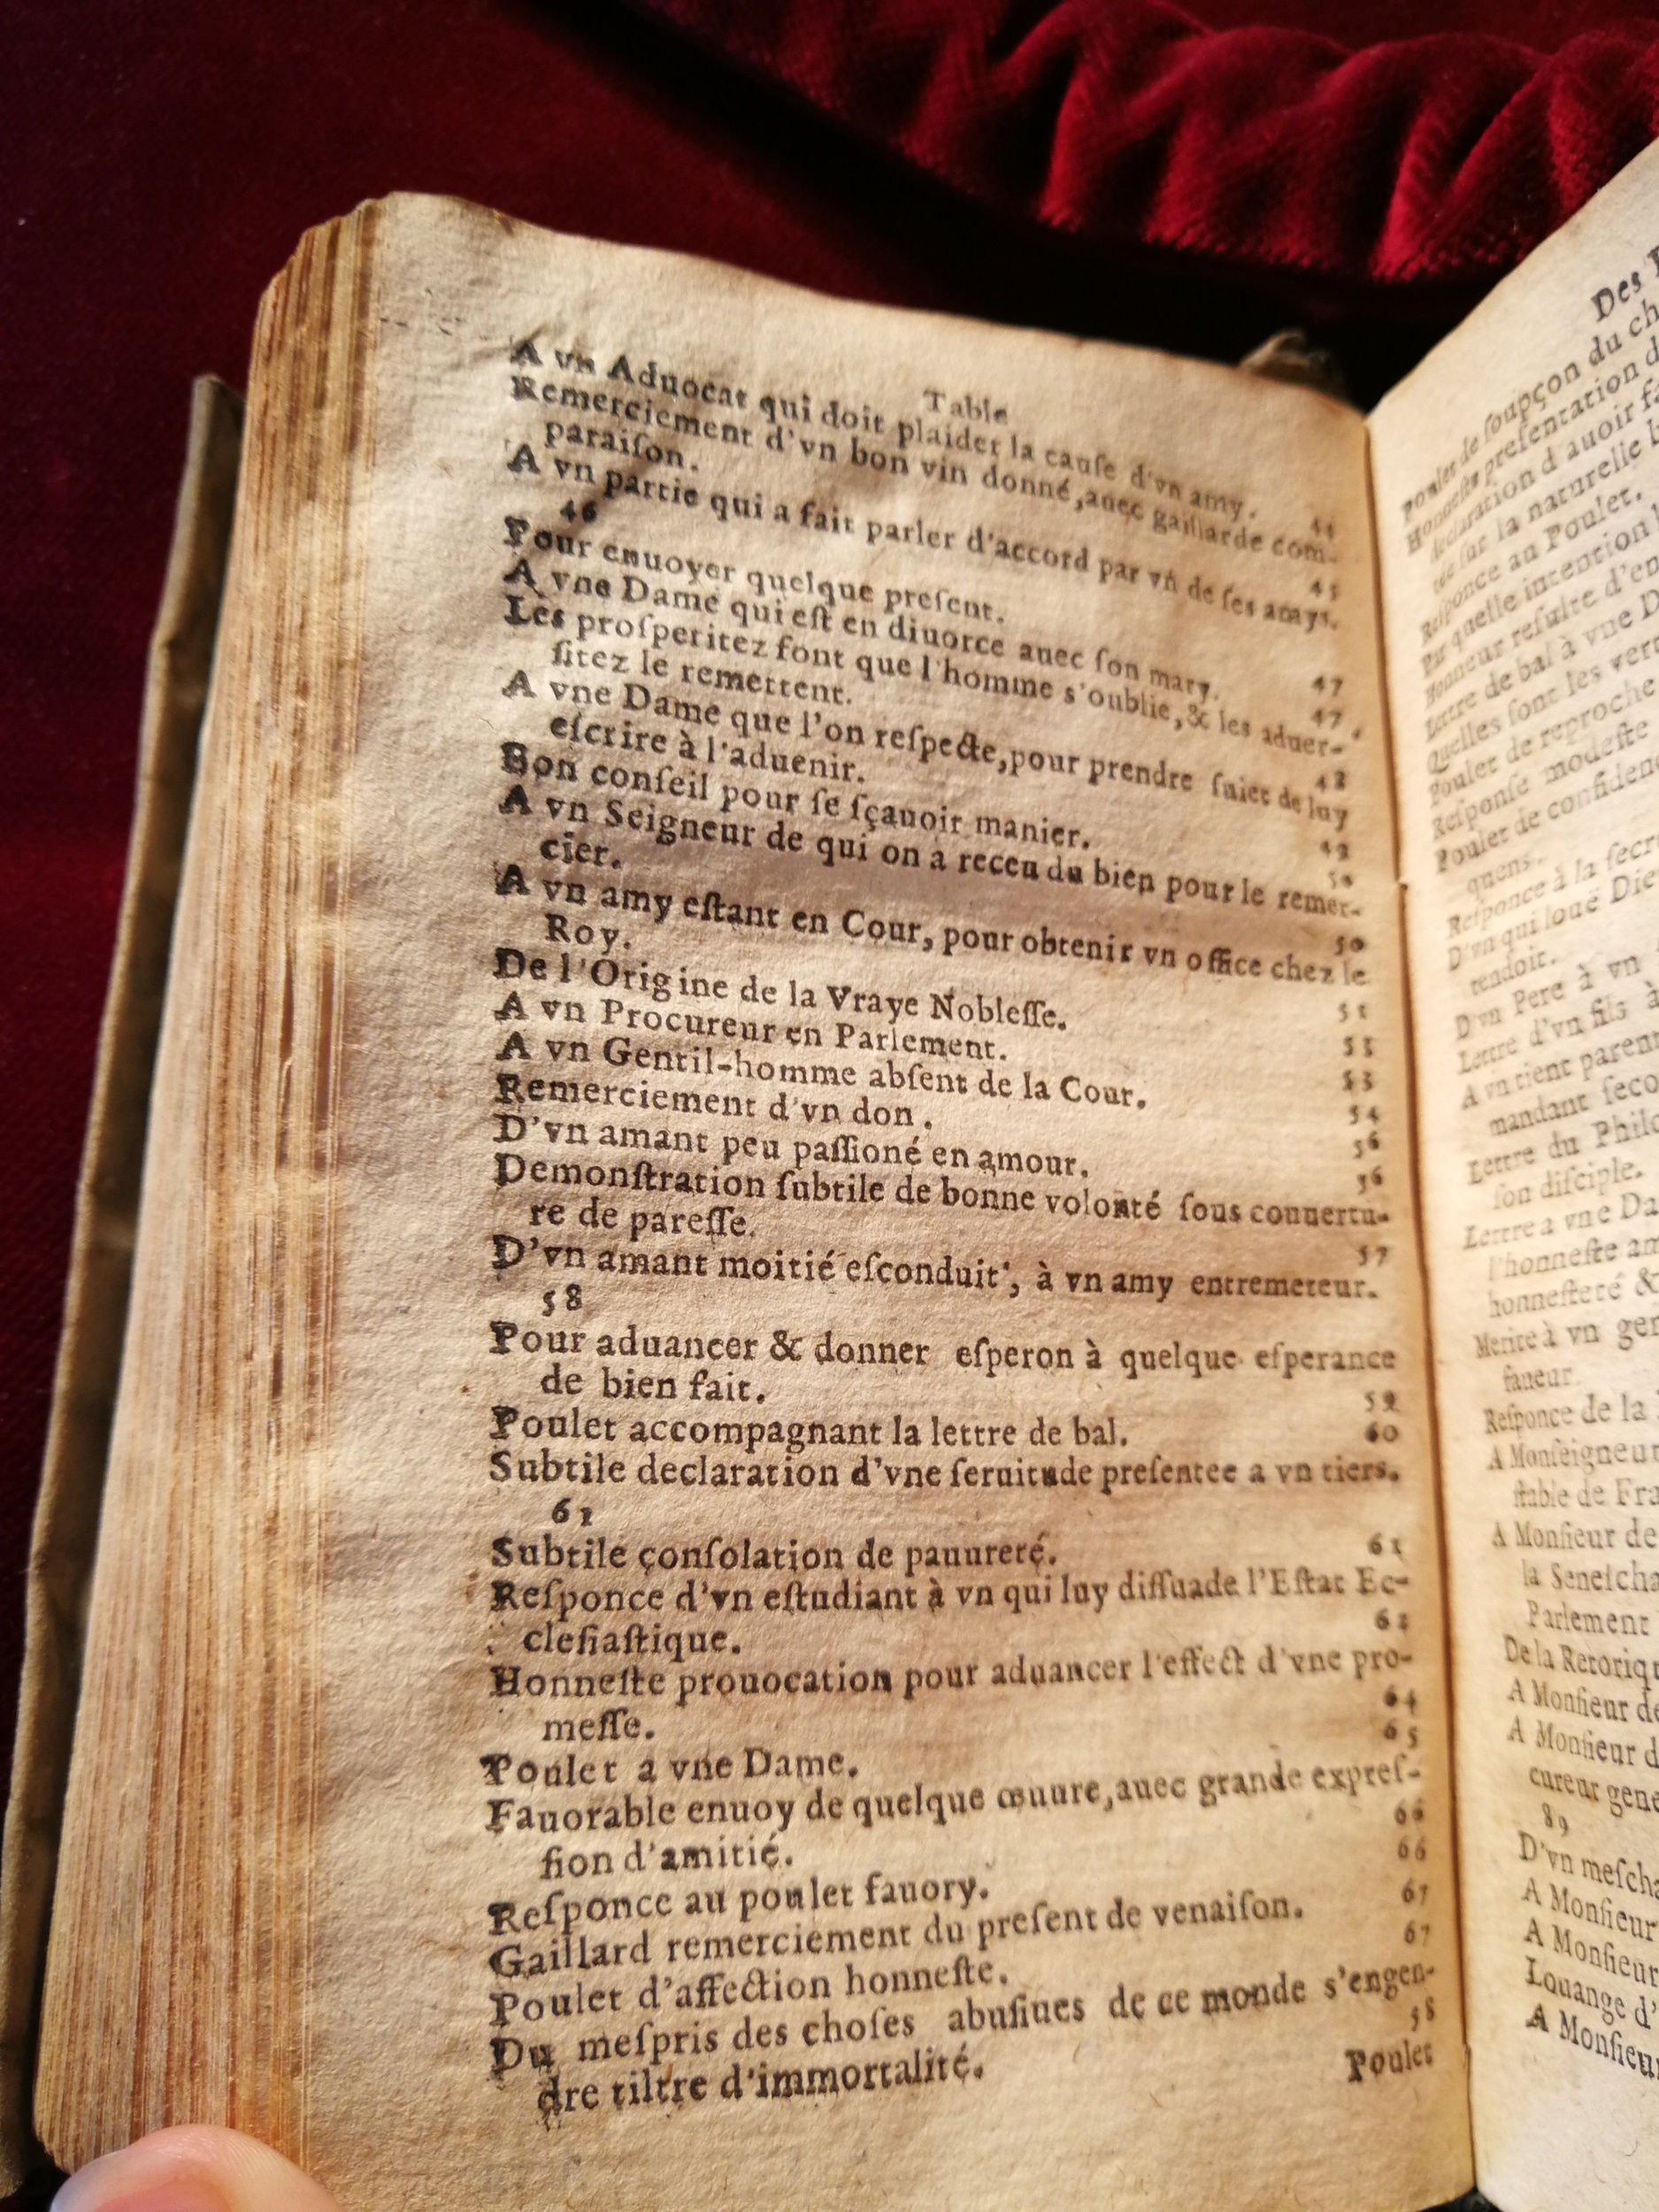 Table
A vn Aduocat qui doit plaider la cauſe d'vn amy. 44
Remerciement d'vn bon vin donné, auec gaillarde com-
paraiſon. 45
A vn partie qui a fait parler d'accord par vn de ſes amys.
46
Pour enuoyer quelque preſent. 47
A vne Dame qui eſt en diuorce auec ſon mary. 47
Les proſperitez font que l'homme s'oublie, & les aduer-
ſitez le remettent. 48
A vne Dame que l'on reſpecte, pour prendre ſuiet de luy
eſcrire à l'aduenir. 49
Bon conſeil pour ſe ſçauoir manier. 50
A vn Seigneur de qui on a receu du bien pour le remer-
cier. 50
A vn amy eſtant en Cour, pour obtenir vn office chez le
Roy. 51
De l'Origine de la Vraye Nobleſſe.
A vn Procureur en Parlement. 53
A vn Gentil-homme abſent de la Cour. 54
Remerciement d'vn don. 56
D'vn amant peu paſſioné en amour. 56
Demonſtration ſubtile de bonne volonté ſous couuertu-
re de pareſſe. 57
D'vn amant moitié eſconduit, à vn amy entremeteur.
58
Pour aduancer & donner eſperon à quelque eſperance
de bien fait. 59
Poulet accompagnant la lettre de bal. 60
Subtile declaration d'vne ſeruitude preſentee a vn tiers.
61
Subtile conſolation de pauureté. 61
Reſponce d'vn eſtudiant à vn qui luy diſſuade l'Eſtat Ec-
cleſiaſtique. 62
Honneſte prouocation pour aduancer l'effect d'vne pro-
meſſe. 64
Poulet a vne Dame. 65
Fauorable enuoy de quelque œuure, auec grande expreſ-
ſion d'amitié. 66
Reſponce au poulet fauory. 66
Gaillard remerciement du preſent de venaiſon. 67
Poulet d'affection honneſte. 67
Du meſpris des choſes abuſiues de ce monde s'engen-
dre tiltre d'immortalité. 58
Poulet
Des
Poulet de ſoupçon du
Honneſte preſentation
declaration d'auoir
ſur la naturelle
Reſponce au Poulet.
Par quelle intention
Honneur reſulte
Lettre de bal à vne
Quelles ſont les
Poulet de reproche
Reſponſe modeſte
Poulet de
quens.
Reſponce à la
D'vn qui louë
rendoit.
D'vn Pere à vn
Lettre d'vn fils à
A vn tient
mandant
Lettre du
ſon diſciple.
Lettre a vne
l'honneſte
honneſteté &
Merite à vn
faueur.
Reſponce de la
A Monſeigneur
ſtable de
A Monſieur de
la
Parlement
De la
A Monſieur
A Monſieur
cureur
89
D'vn
A Monſieur
A Monſieur
Louange
A Monſieur